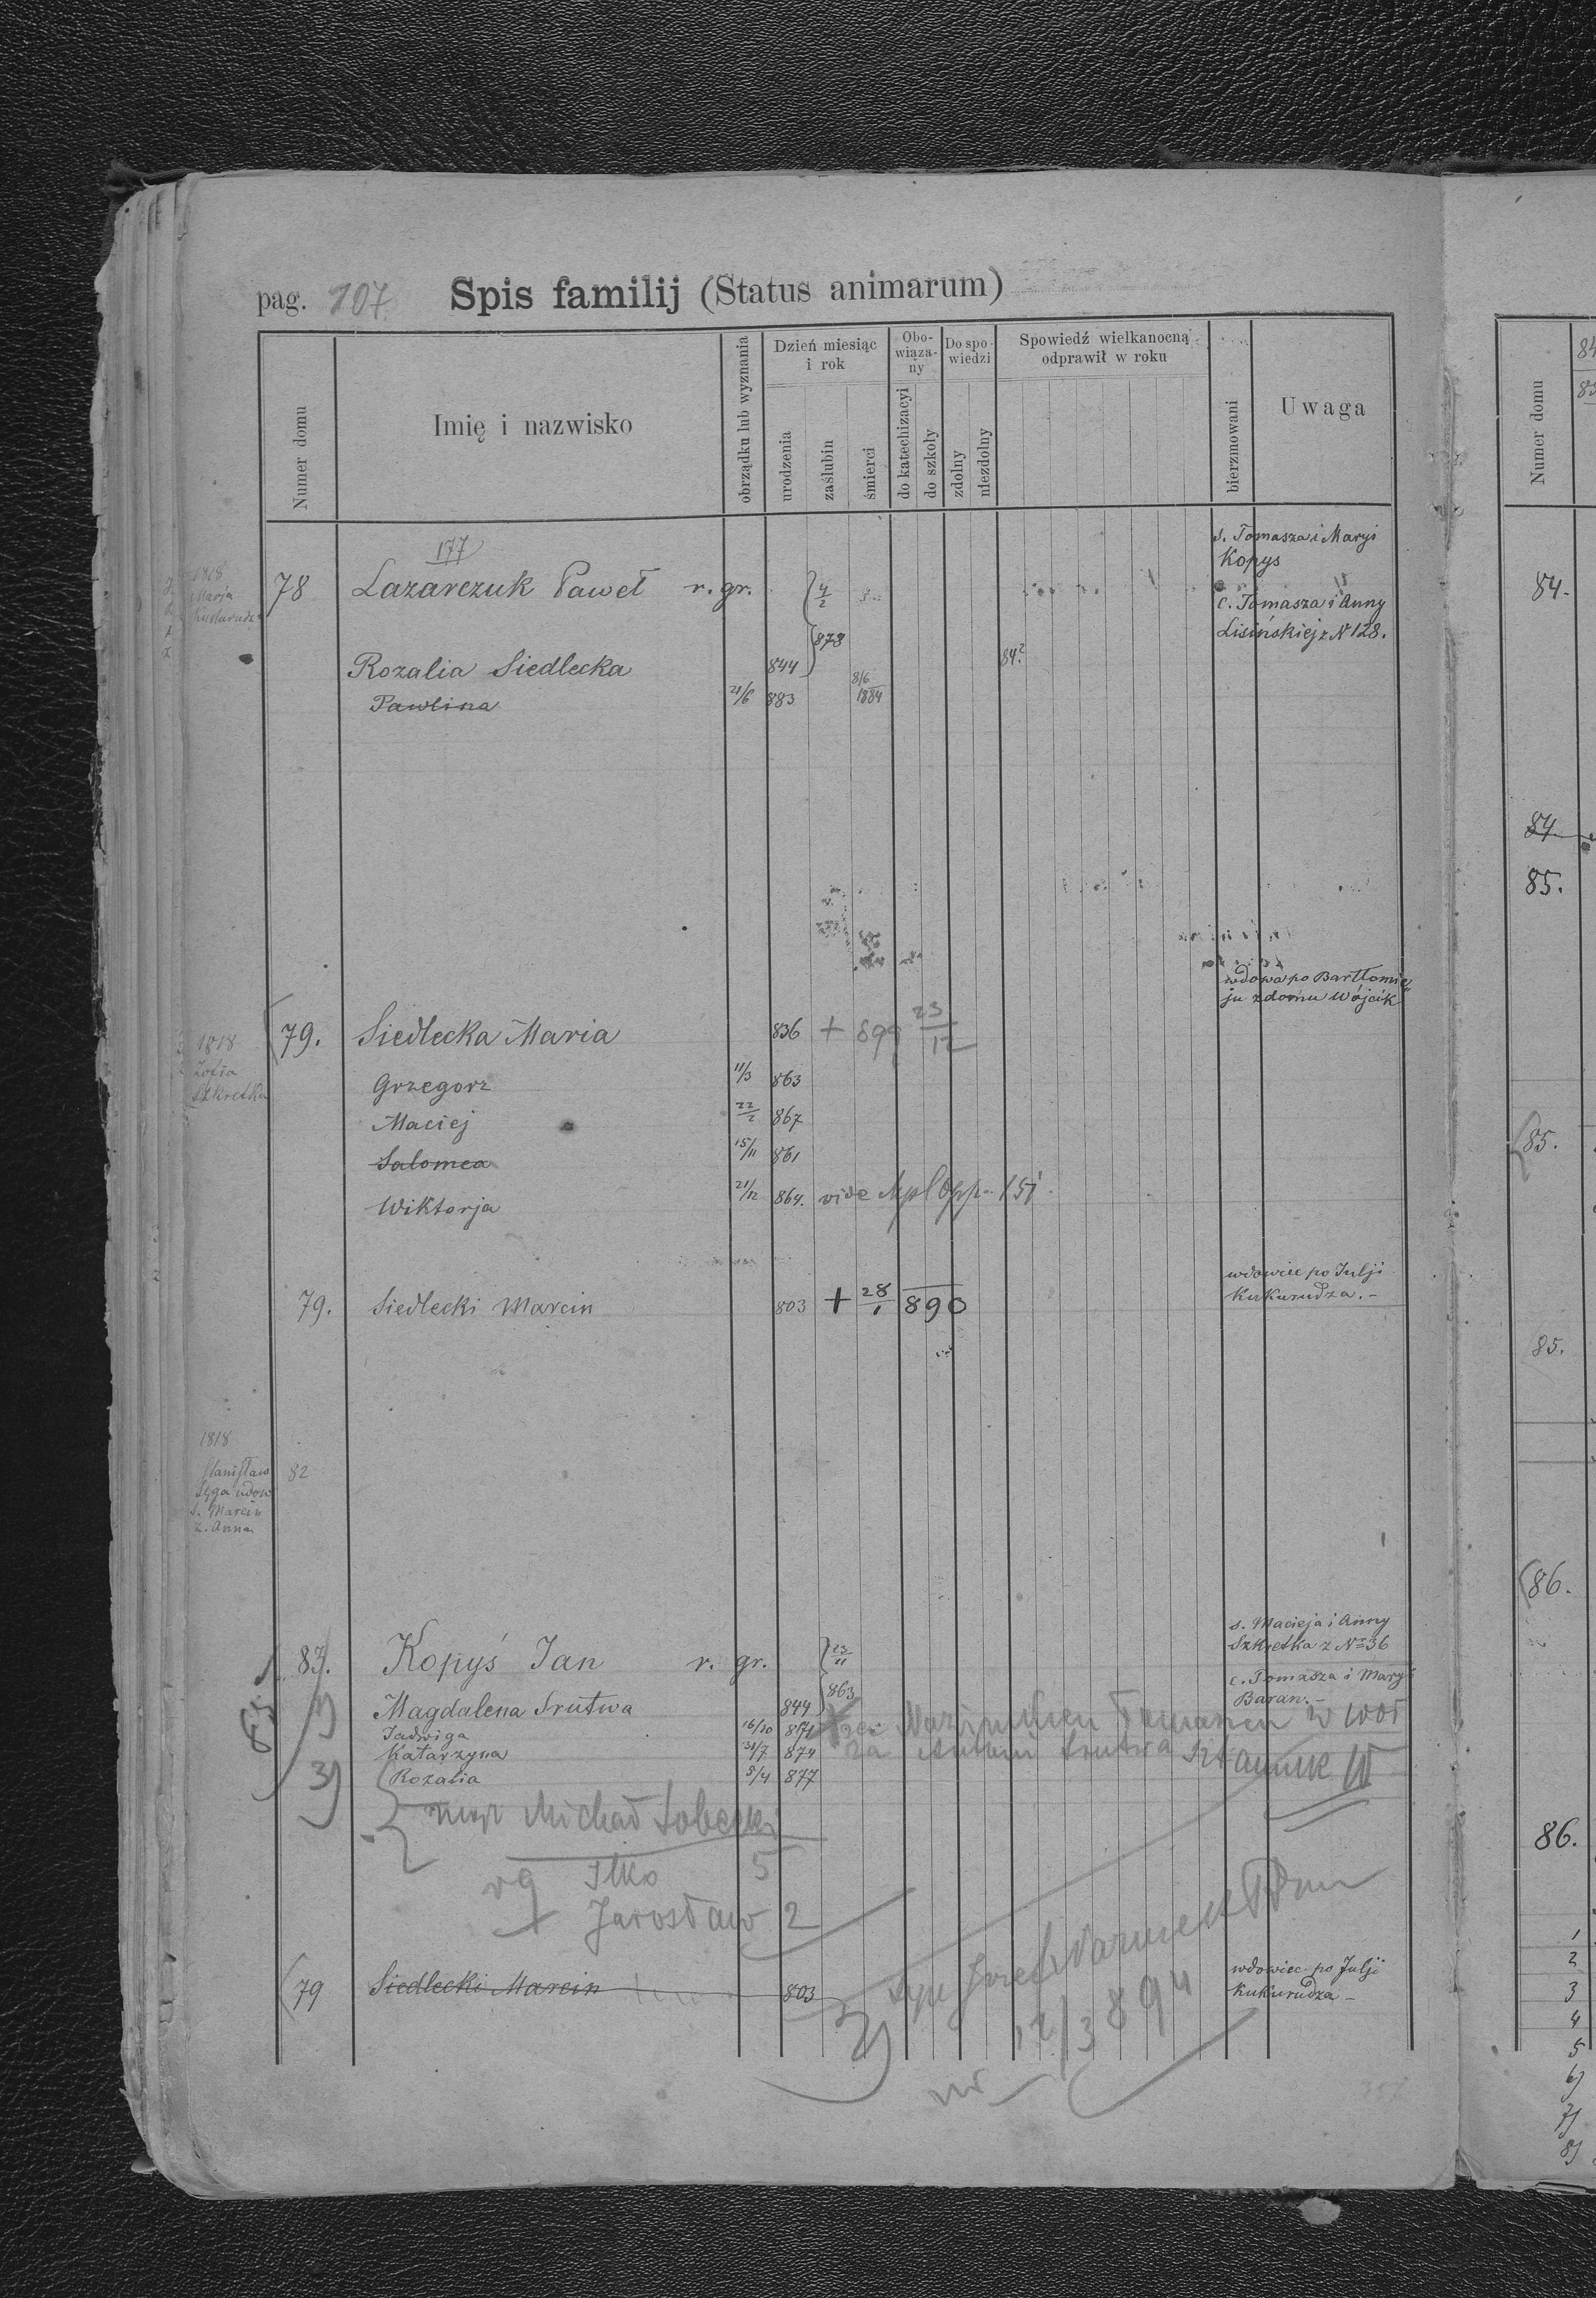 pag. 107. Spis familij (Status animarum)
Numer domu
Imię i nazwisko
obrządku lub wyznania
Dzień miesiąc i rok
urodzenia
zaślubin
śmierci
Obo-
wiąza-
ny
do katechizacyi
do szkoły
Do spo-
wiedzi
zdolny
niezdolny
Spowiedź wielkanocną
odprawił w roku
bierzmowani
Uwaga
Numer domu
177
s. Tomasza i Maryi
Kopys
1818
Marja
78 Lazarczuk Paweł r. gr. 4/2
c. Tomasza i Anny
Lisińskiej z N 128.
878
Rozalia Siedlecka 844 84?
Pawlina 21/6 883 8/6 1884
wdowa po Bartłomie
ju z domu Wójcik
79. Siedlecka Maria 836 + 899 23/12
1818
Zofia
Szkretka
Grzegorz 11/3 863
Maciej 22/2 867
Salomea 15/11 861
Wiktorja 21/12 864. vide 151
wdowiec po Julji
Kukurudza.-
79. Siedlecki Marcin 803 + 28/1 890
1818
Stanisław 82
Syga wdow
s. Marcin
z. Anna
s. Macieja i Anny
Szkretka z No 36
83. Kopyś Jan r. gr. 23/11
c. Tomasza i Mary
Baran.-
863
Magdalena Srutwa 844
Jadwiga 16/10 871
Katarzyna 31/7 874 za Srutwa
Rozalia 5/4 877
3)
mąż Michał
Ilko 5
Jarosław 2
12/3 894
79 Siedlecki Marcin 803
wdowiec po Julji
Kukurudza-
84.
84
85.
85.
85.
86.
86.
1
2
3
4
5
6)
7)
8)